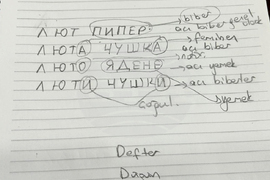 → biber
ЛЮТ ПИПЕР: acı biber
→ feminen
ЛЮТА ЧУШКА acı biber
→ nötr.
ЛЮТО ЯДЕНЕ → acı yemek
ЛЮТИ ЧУШКИ → acı biberler
çoğul. yemek
Defter